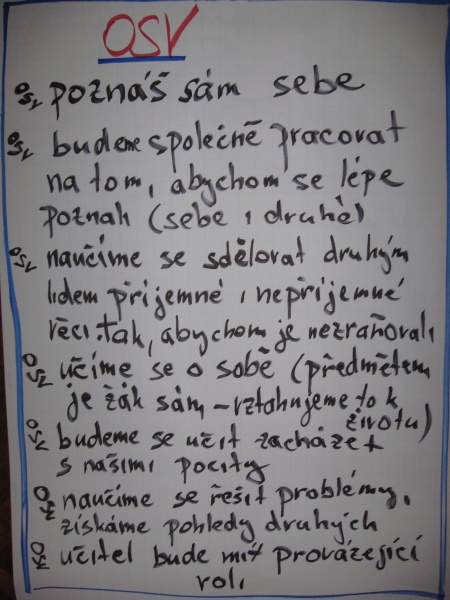 OSV
OSV poznáš sám sebe
OSV budeme společně pracovat
na tom, abychom se lépe
poznali (sebe i druhé)
OSV naučíme se sdělovat druhým
lidem příjemné i nepříjemné
věci tak, abychom je nezraňovali
OSV učíme se o sobě (předmětem
je žák sám - vztahujeme to k
životu)
OSV budeme se učit zacházet
s našimi pocity
OSV naučíme se řešit problémy,
získáme pohledy druhých
OSV učitel bude mít provázející
roli